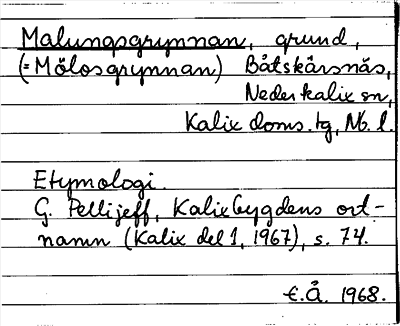 Malungsgrynnan, grund,
(=Mölosgrynnan) Båtskärsnäs,
Nederkalix sn,
Kalix doms. tg, Nb. l.
Etymologi.
G. Pellijeff, Kalixbygdens ort-
namn (Kalix del 1, 1967), s. 74.
E.Å. 1968.